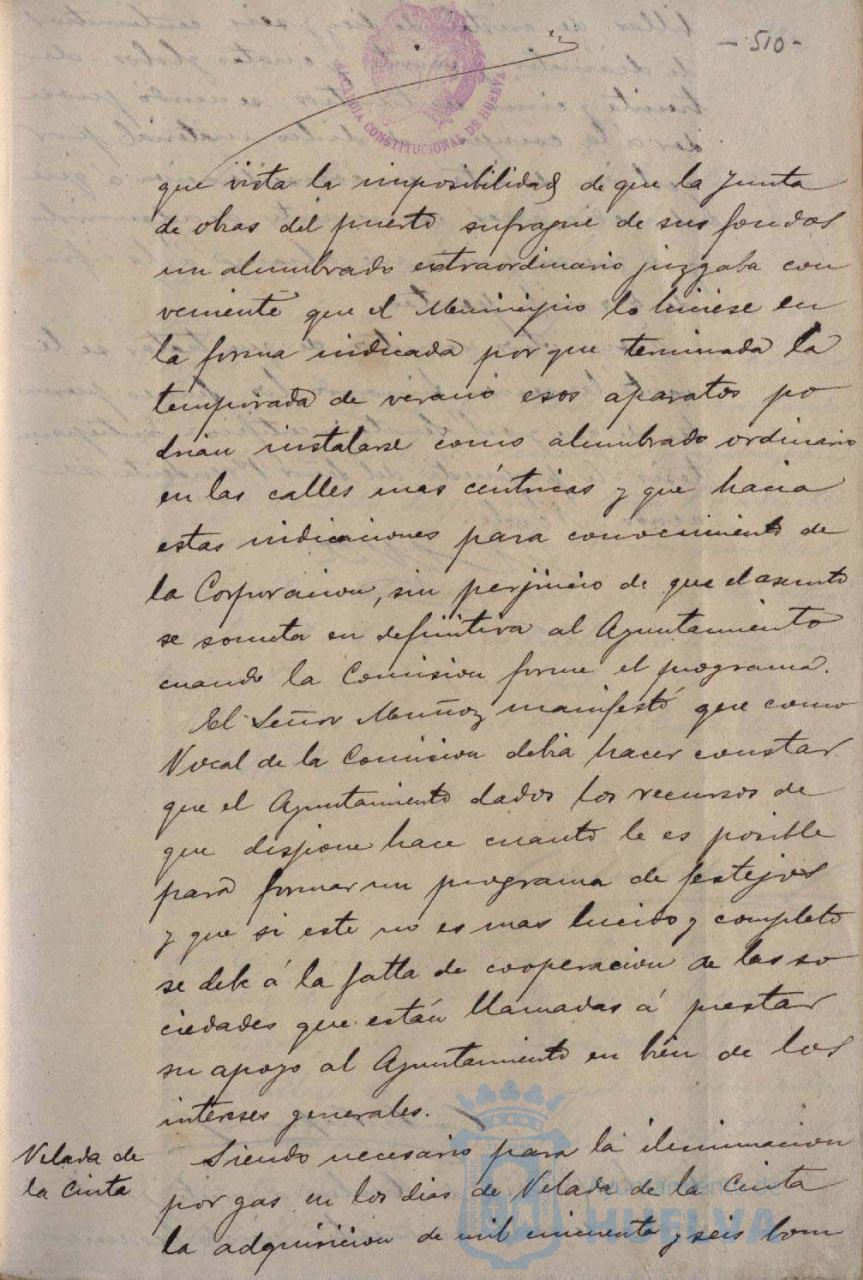 - 510 -
ALCALDIA CONSTITUCIONAL DE HUELVA
que vista la imposibilidad de que la Junta
de obras del puerto sufrague de sus fondos
un alumbrado extraordinario juzgaba con
veniente que el Municipio lo hiciese en
la forma indicada por que terminada la
temporada de verano esos aparatos po
drian instalarse como alumbrado ordinario
en las calles mas céntricas y que hacia
estas indicaciones para conocimiento de
la Corporacion, sin perjuicio de que el asunto
se someta en definitiva al Ayuntamiento
cuando la Comision forme el programa.
El Señor Muñoz manifestó que como
Vocal de la Comision debia hacer constar
que el Ayuntamiento dados los recursos de
que dispone hace cuanto le es posible
para formar un programa de festejos
y que si este no es mas lucido y completo
se debe á la falta de cooperacion de las so
ciedades que están llamadas á prestar
su apoyo al Ayuntamiento en bien de los
intereses generales.
Velada de
la Cinta
Siendo necesario para la iluminacion
por gas en los dias de Velada de la Cinta
la adquisicion de mil cincuenta y seis bom
HUELVA